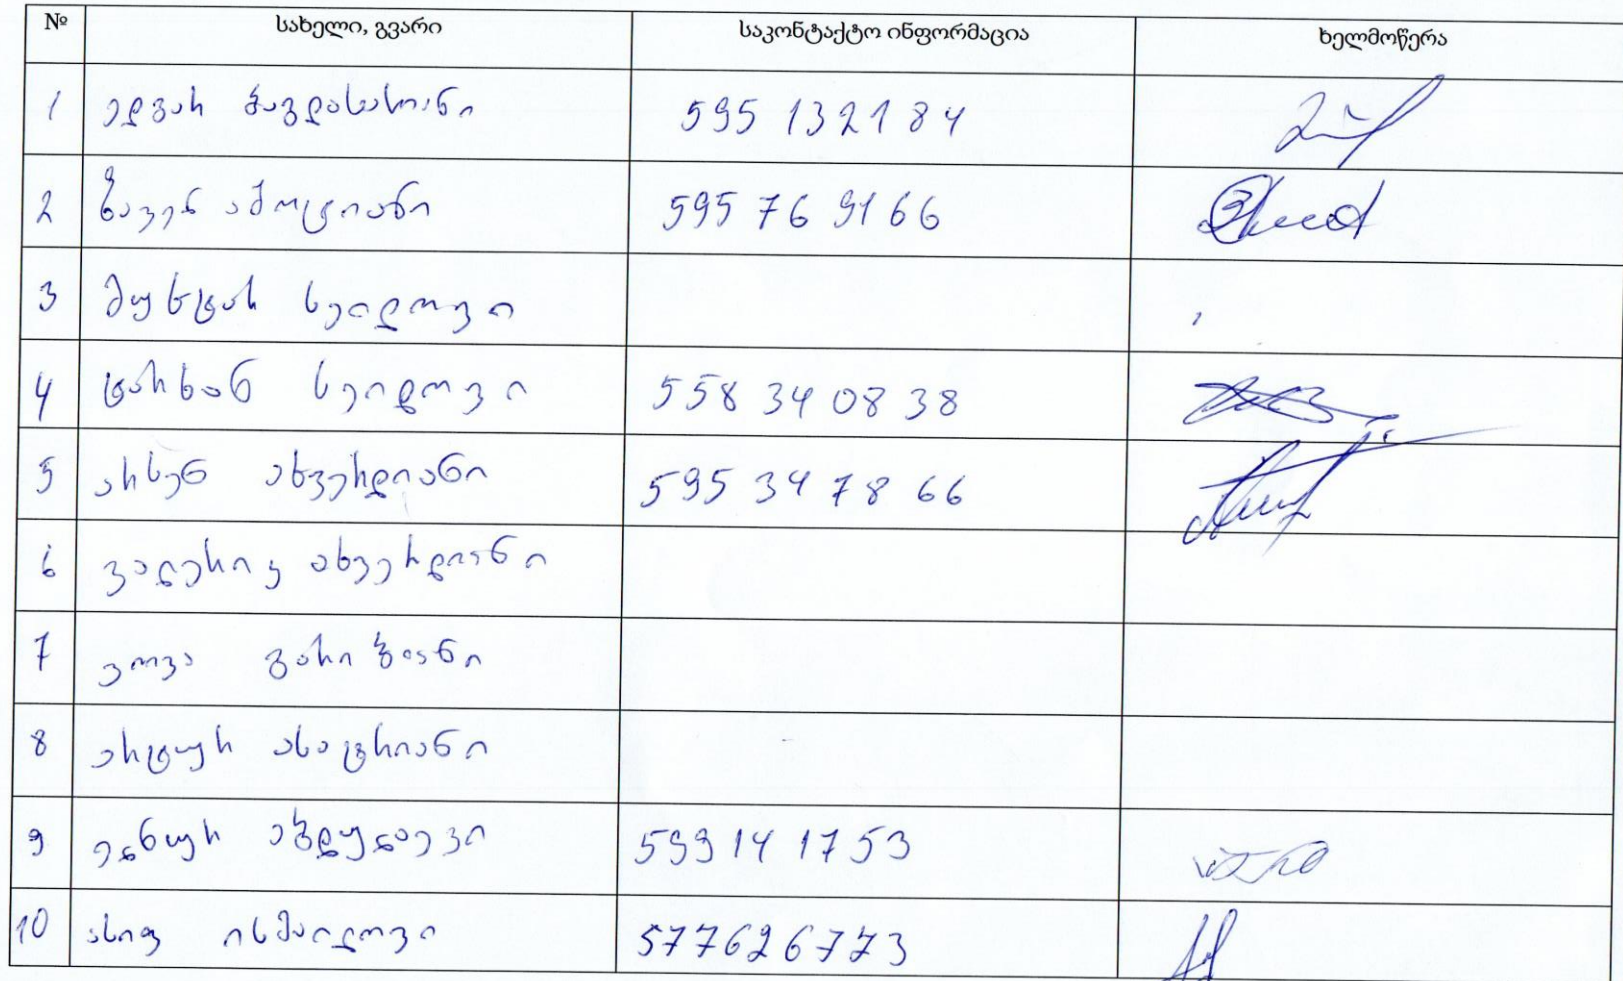 № სახელი, გვარი საკონტაქტო ინფორმაცია ხელმოწერა
1 ედვარ ბაგდასაროანი 595 132184
2 ზავენ ამოცოიანი 595 76 9166
3 მუხტარ სეიდოვი
4 ტარხან სეიდოვი 558 34 08 38
5 არსენ ახვერდიანი 595 34 78 66
6 ვალერიკ ახვერდიანი
7 ვოვა ვარიბიანი
8 არტურ ასატრიანი
9 აბდულაევი 599 14 17 53
10 ასიფ ისმაილოვი 577626773